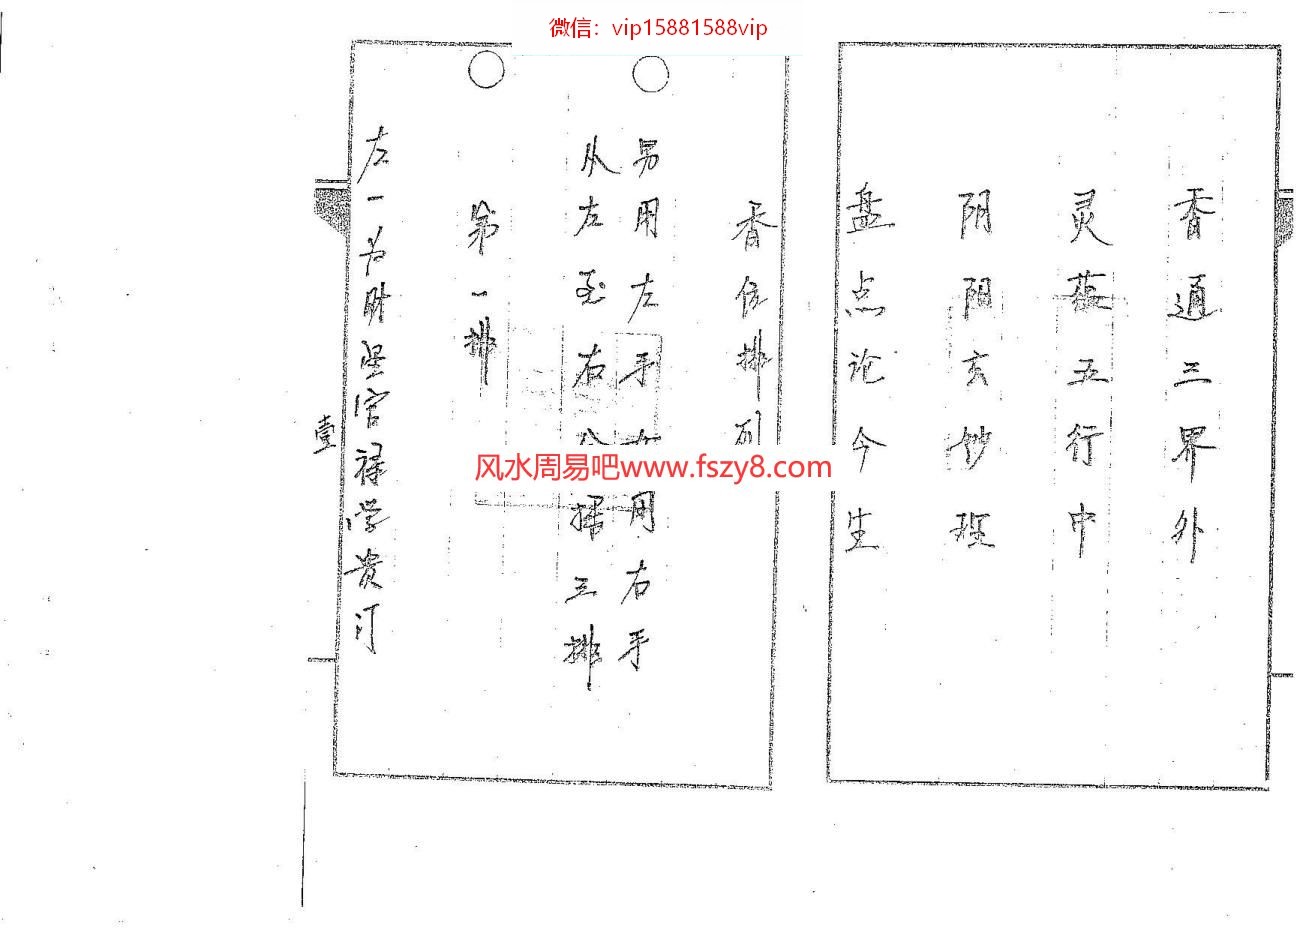 微信：vip15881588vip
香通三界外
灵蕴五行中
阴阳玄妙理
盘点论今生
香位排列
男用左手女用右手
从左至右分 三排
第一排
左一为财 官禄学贵
壹
风水周易吧www.fszy8.com